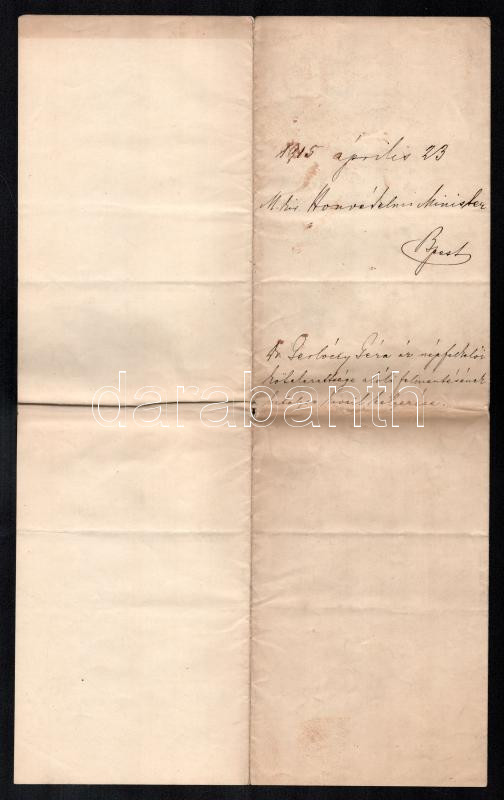 1915 április 23
M. kir. Honvédelmi Minister
Bpest
Dr Géza úr népfelkelői
kötelezettsége alóli felmentésének
darabanth